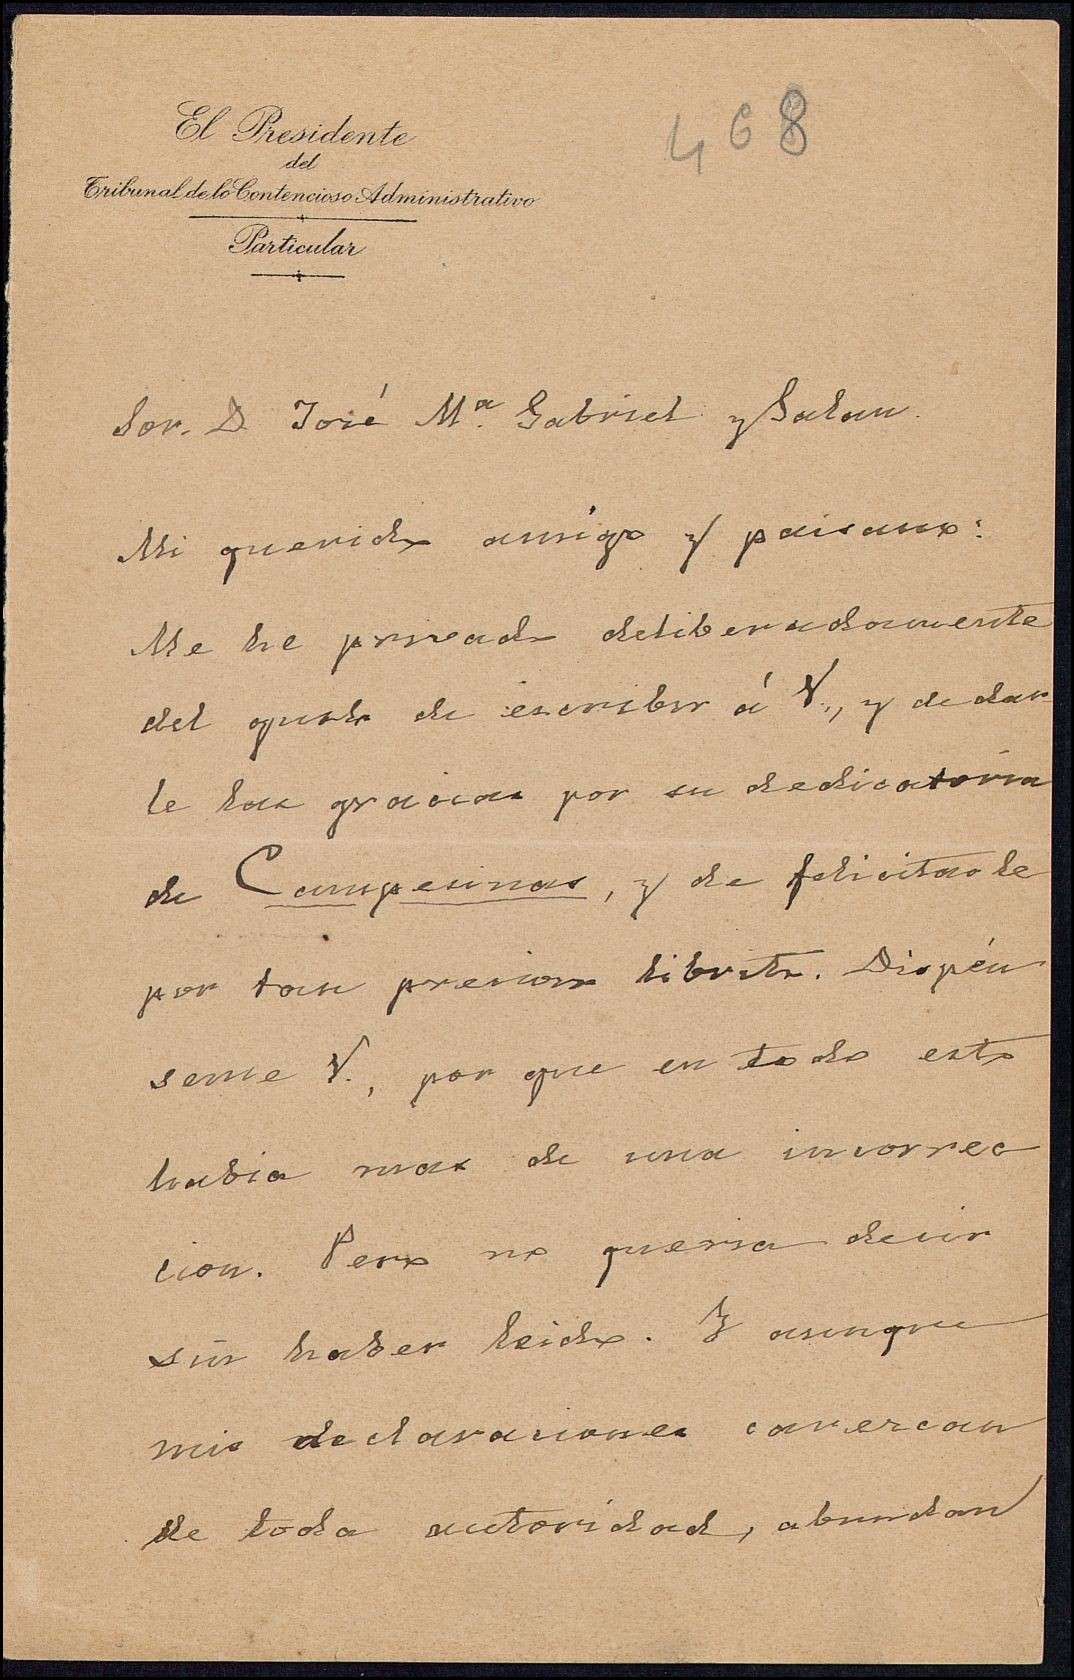 El Presidente
del
Tribunal de lo Contencioso Administrativo
Particular
468
Sor. D José Mª. Gabriel y Galan.
Mi querido amigo y paisano:
Me he privado deliberadamente
del gusto de escribir á V., y de dar
le las gracias por su dedicatoria
de Campesinas, y de felicitarle
por tan precioso librito. Dispén
seme V., por que en todo esto
habia mas de una incorrec
cion. Pero no queria decir
sin haber leido. Y aunque
mis declaraciones carezcan
de toda autoridad, abundan